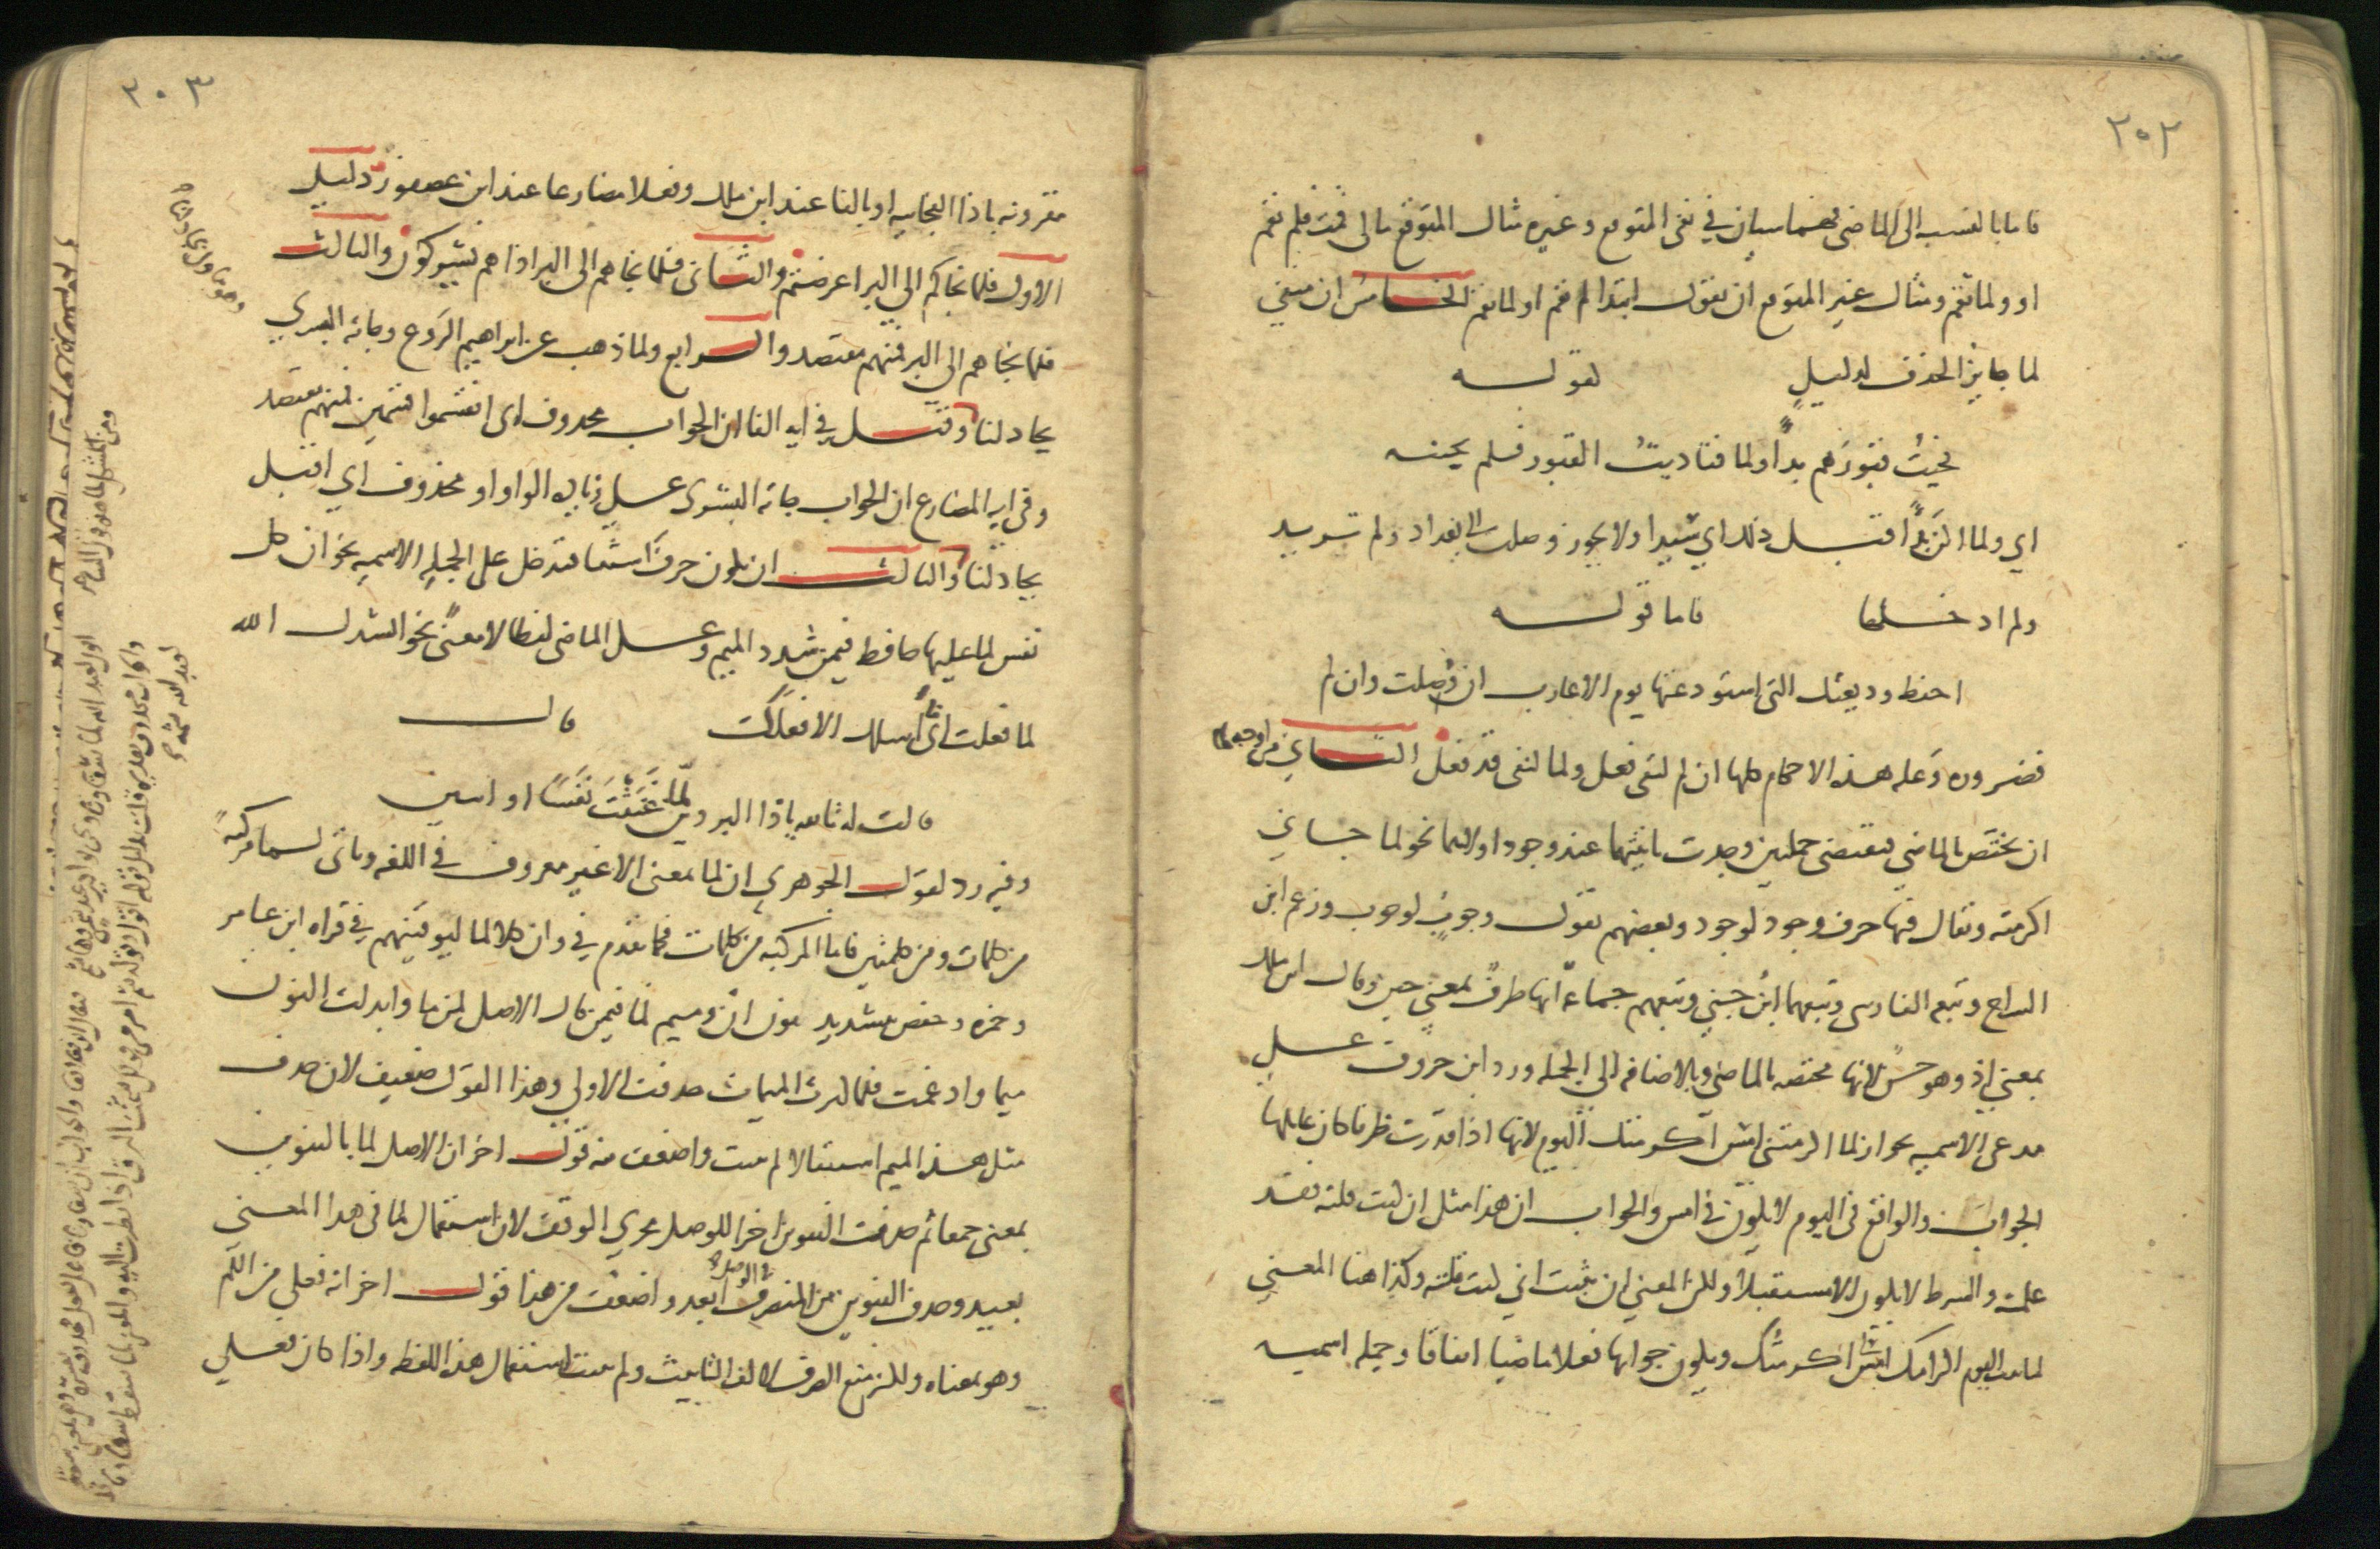 ٢٠٢
فاما بالنسبه الى الماضي فهما سيان في نفى المتوقع وغيره مثال المتوقع مالى قمت فلم تقم
او ولما تقم ومثال غير المتوقع ان تقول ابتدا لم تقم او لما تقم الخامس ان منفي
لما جايز الحذف لدليل كقوله
فجيت قبورهم بدأ ولما فناديت القبور فلم يجبنه
اي ولما اكن بدأ قبل ذلك اي سيدا ولا يجوز وصلت الى بغداد ولم تريد
ولم ادخلها فاما قوله
احفظ وديعتك التي استودعتها يوم الاعازب ان وصلت وان لم
فضروره وعله هذه الاحكام كلها ان لم لنفى فعل ولما لنفى قد فعل الثاني من اوجه لما
ان تختص بالماضي فتقتضي جملتين وجدت ثانيتهما عند وجود اولاهما نحو لما جاني
اكرمته ويقال فيها حرف وجود لوجود وبعضهم يقول وجوب لوجوب وزعم ابن
السراج وتبعه الفارسي وتبعهما ابن جني وتبعهم جماعه انها ظرف بمعنى حين وقال ابن ملك
بمعنى اذ وهو حسن لانها مختصه بالماضي وبالاضافه الى الجمله ورد ابن خروف على
مدعى الاسميه بجواز لما اكرمتني امس اكرمتك اليوم لانها اذا قدرت ظرفا كان عاملها
الجواب والواقع في اليوم لا يكون في امس والجواب ان هذا مثل ان كنت قلته فقد
علمته والشرط لا يكون الا مستقبلا ولكن المعنى ان يثبت اني كنت قلته وكذا هنا المعنى
لما ثبت اليوم اكرامك امس اكرمتك ويكون جوابها فعلا ماضيا اتفاقا وجمله اسميه
٢٠٣
مقرونه باذا الفجاييه او بالفا عند ابن ملك وفعلا مضارعا عند ابن عصفور دليل
الاول فلما نجاكم الى البر اعرضتم والثاني فلما نجاهم الى البر اذا هم يشركون والثالث
فلما نجاهم الى البر فمنهم مقتصد والرابع ولما ذهب عن ابراهيم الروع وجاته البشري
يجادلنا وقيل في ايه الفا ان الجواب محذوف اى انقسموا قسمين فمنهم مقتصد
وفي ايه المضارع ان الجواب جاته البشرى على زياده الواو او محذوف اي اقبل
يجادلنا والثالث ان يكون حرف استثنا فتدخل على الجمله الاسميه نحو ان كل
نفس لما عليها حافظ فيمن شدد الميم وعلى الماضي لفظا لا معنى نحو انشدك الله
لما فعلت اى ما اسلك الا فعلك قال
قالت له بالله ياذا البردين لما غنثت نفسا او اثنين
وفيه رد لقول الجوهري ان لما بمعنى الا غير معروف في اللغه وتاتى لما مركبة
من كلمات ومن كلمتين فاما المركبه من كلمات فكما تقدم في وان كلا لما ليوفينهم في قراه ابن عامر
وحمزه وحفص بتشديد نون ان وميم لما فيمن قال الاصل لمن ما وابدلت النون
ميما وادغمت فلما كثرت الميمات حذفت الاولى وهذا القول ضعيف لان حذف
مثل هذه الميم استثقالا لم يثبت واضعف منه قول اخر ان الاصل لما بالتنوين
بمعنى جمعا ثم حذفت التنوين اجرا للوصل مجري الوقف لان استعمال لما في هذا المعنى
بعيد وحذف التنوين من المنصرف في الوصل ابعد واضعف من هذا قول اخر انه فعلى من اللم
وهو بمعناه ولكن منع الصرف لالف التانيث ولم يثبت استعمال هذه اللفظه واذا كان فعلى